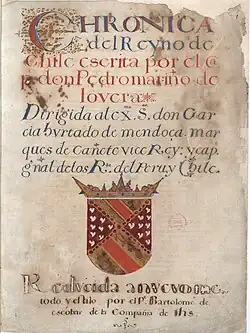 CHRONICA
del Reyno de
Chile escrita por el C
p. don Pedro mariño de
lovera
Dirigida al ex. S. don Gar
cia hurtado de mendoça. mar
ques de Cañete vice Rey. y cap.
gñal de los R.s del Peru y Chile.
Reducida a nuevo me
todo y estilo por el P.e Bartolome de
escobar de la Compañia de IHS